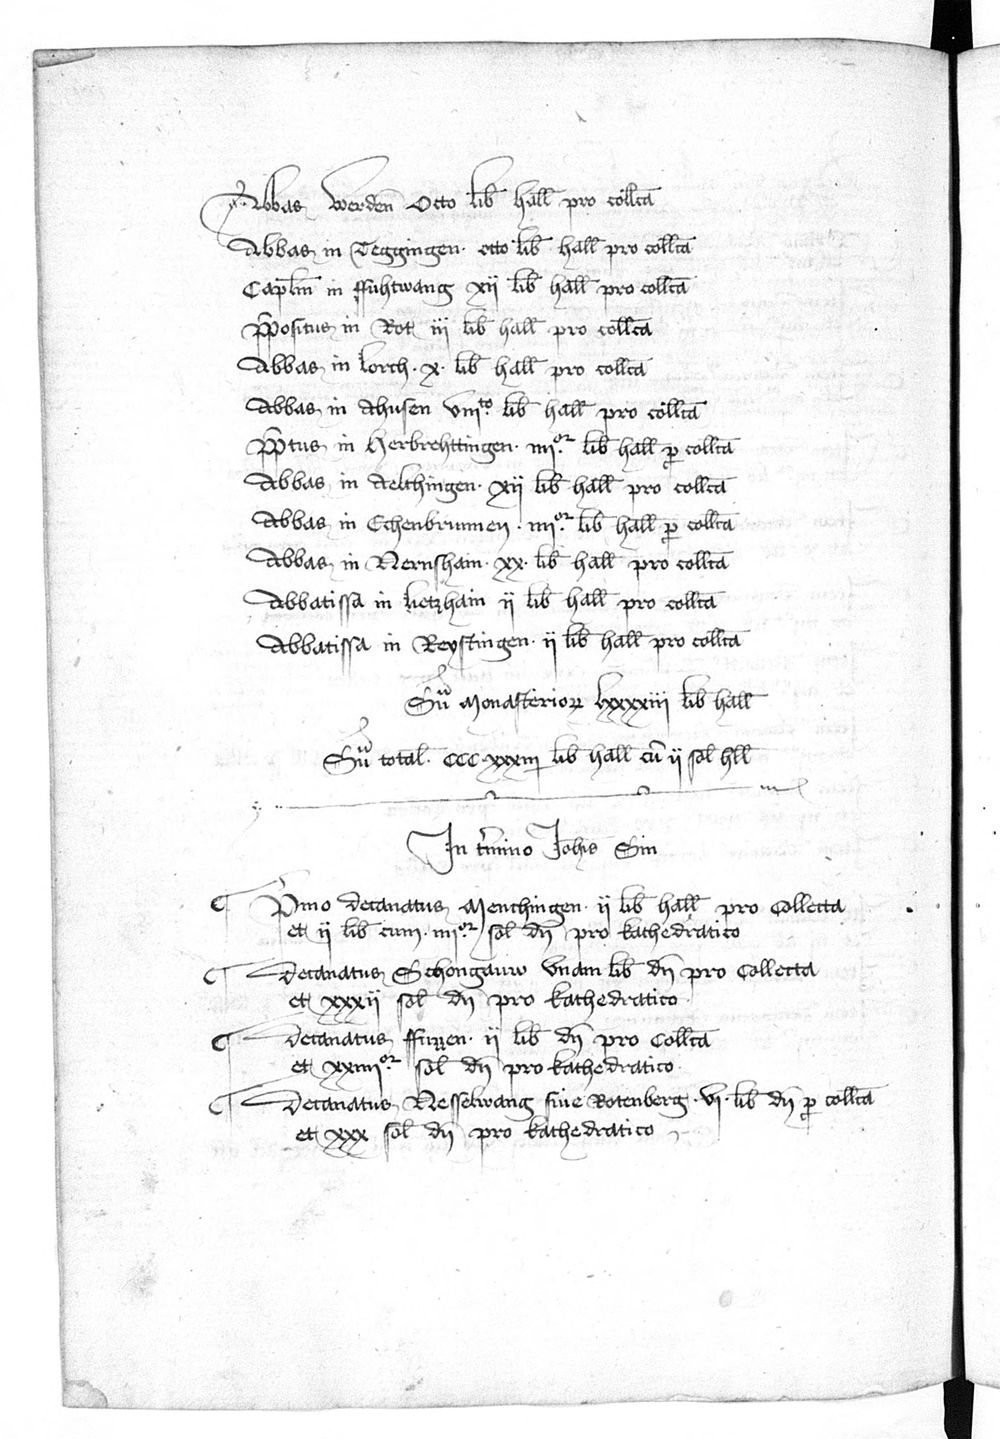 Abbas Werden̄ Otto lib̄ hall̄ pro coll̄cā
Abbas in Deggingen · otto lib̄ hall̄ pro coll̄cā
Capl̄m in ffuhtwang xij lib̄ hall̄ pro coll̄cā
p̄positus in Rot iij lib̄ hall̄ pro coll̄cā
Abbas in lorch · x · lib̄ hall̄ pro coll̄cā
Abbas in Ahusen viiiᵗᵒ lib̄ hall̄ pro coll̄cā
p̄ptus in Herbrehttingen · iiijᵒʳ lib̄ hall̄ ꝓ coll̄cā
Abbas in Aelchingen · xij lib̄ hall̄ pro coll̄cā
Abbas in Echenbrunnen · iiijᵒʳ lib̄ hall̄ ꝓ coll̄cā
Abbas in Nernshain · xx · lib̄ hall̄ pro coll̄cā
Abbatissa in lietzhain ij lib̄ hall̄ pro coll̄cā
Abbatissa in Reystingen · ij lib̄ hall̄ pro coll̄cā
Sū Monasterioꝝ lxxxxiij lib̄ hall̄
Sū total̄ · CCC · xxxiij lib̄ hall̄ cū ij sol̄ hl̄l
In t̄mino Joh̄is Sin
¶ P̄mo decanatus Menchingen · ij lib̄ hall̄ pro Collecta
et ij lib̄ cum · iiijᵒʳ sol̄ dn̄ pro kathedratico
¶ Decanatus Schongauw vnam lib̄ dn̄ pro Collecta
et xxxij sol̄ dn̄ pro kathedratico
¶ Decanatus ffuzzen · ij lib̄ dn̄ pro Coll̄cā
et xxiiijᵒʳ sol̄ dn̄ pro kathedratico
¶ Decanatus Nesselwang siue Rotenberg · vj · lib̄ dn̄ ꝓ coll̄cā
et xxx sol̄ dn̄ pro kathedratico